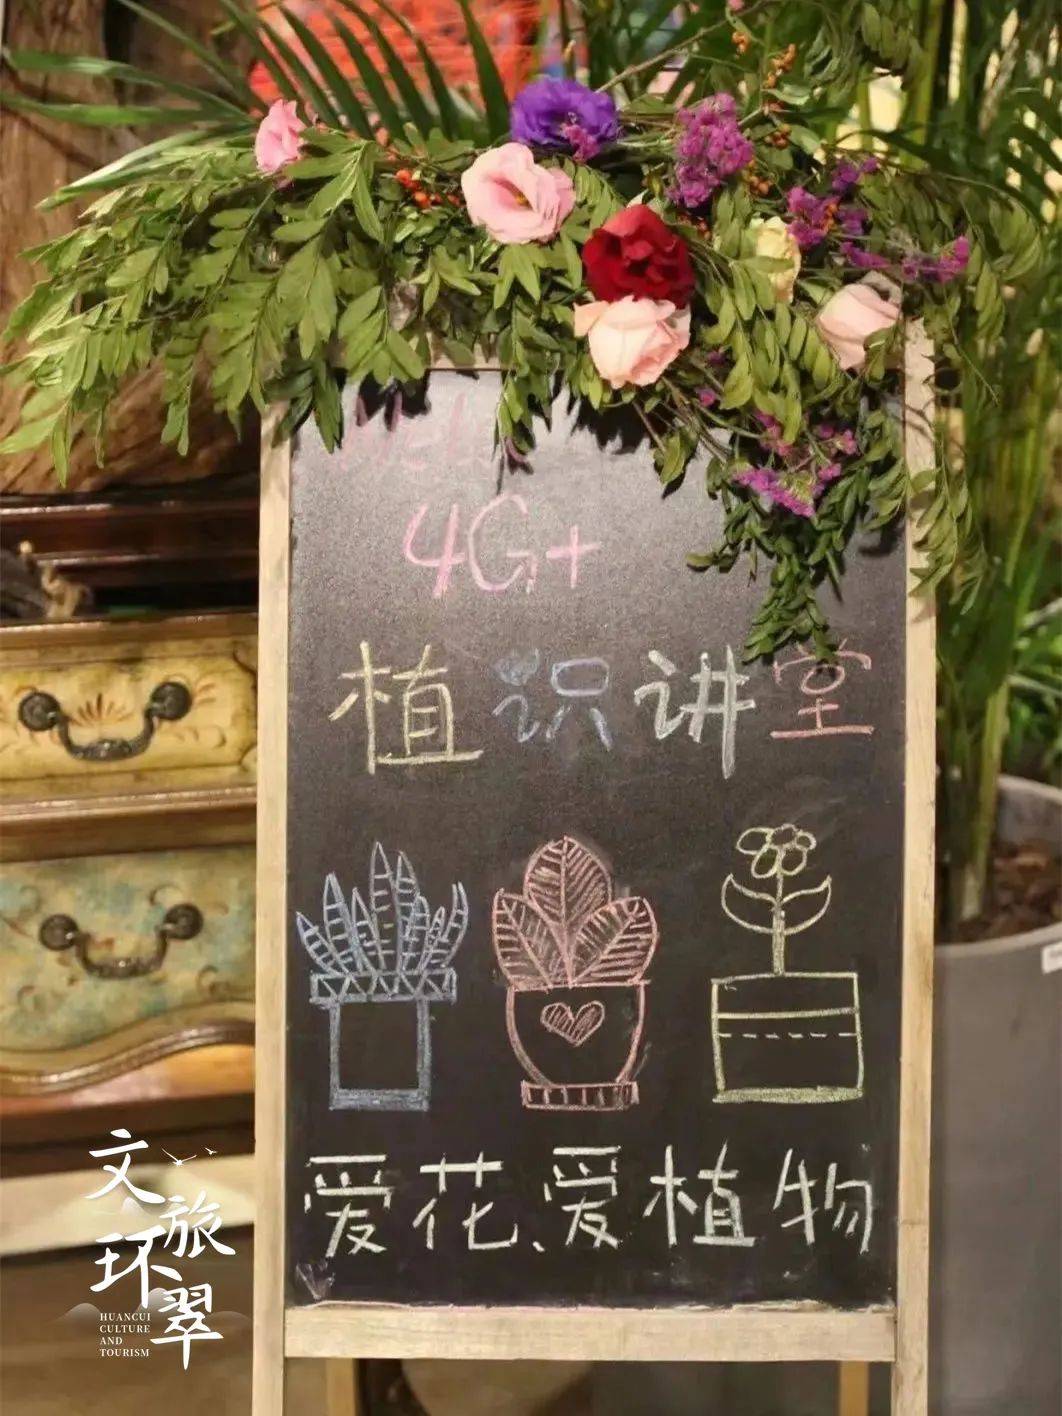 4G+
植识讲堂
爱花、爱植物
文旅
环翠
HUANCUI
CULTURE
AND
TOURISM